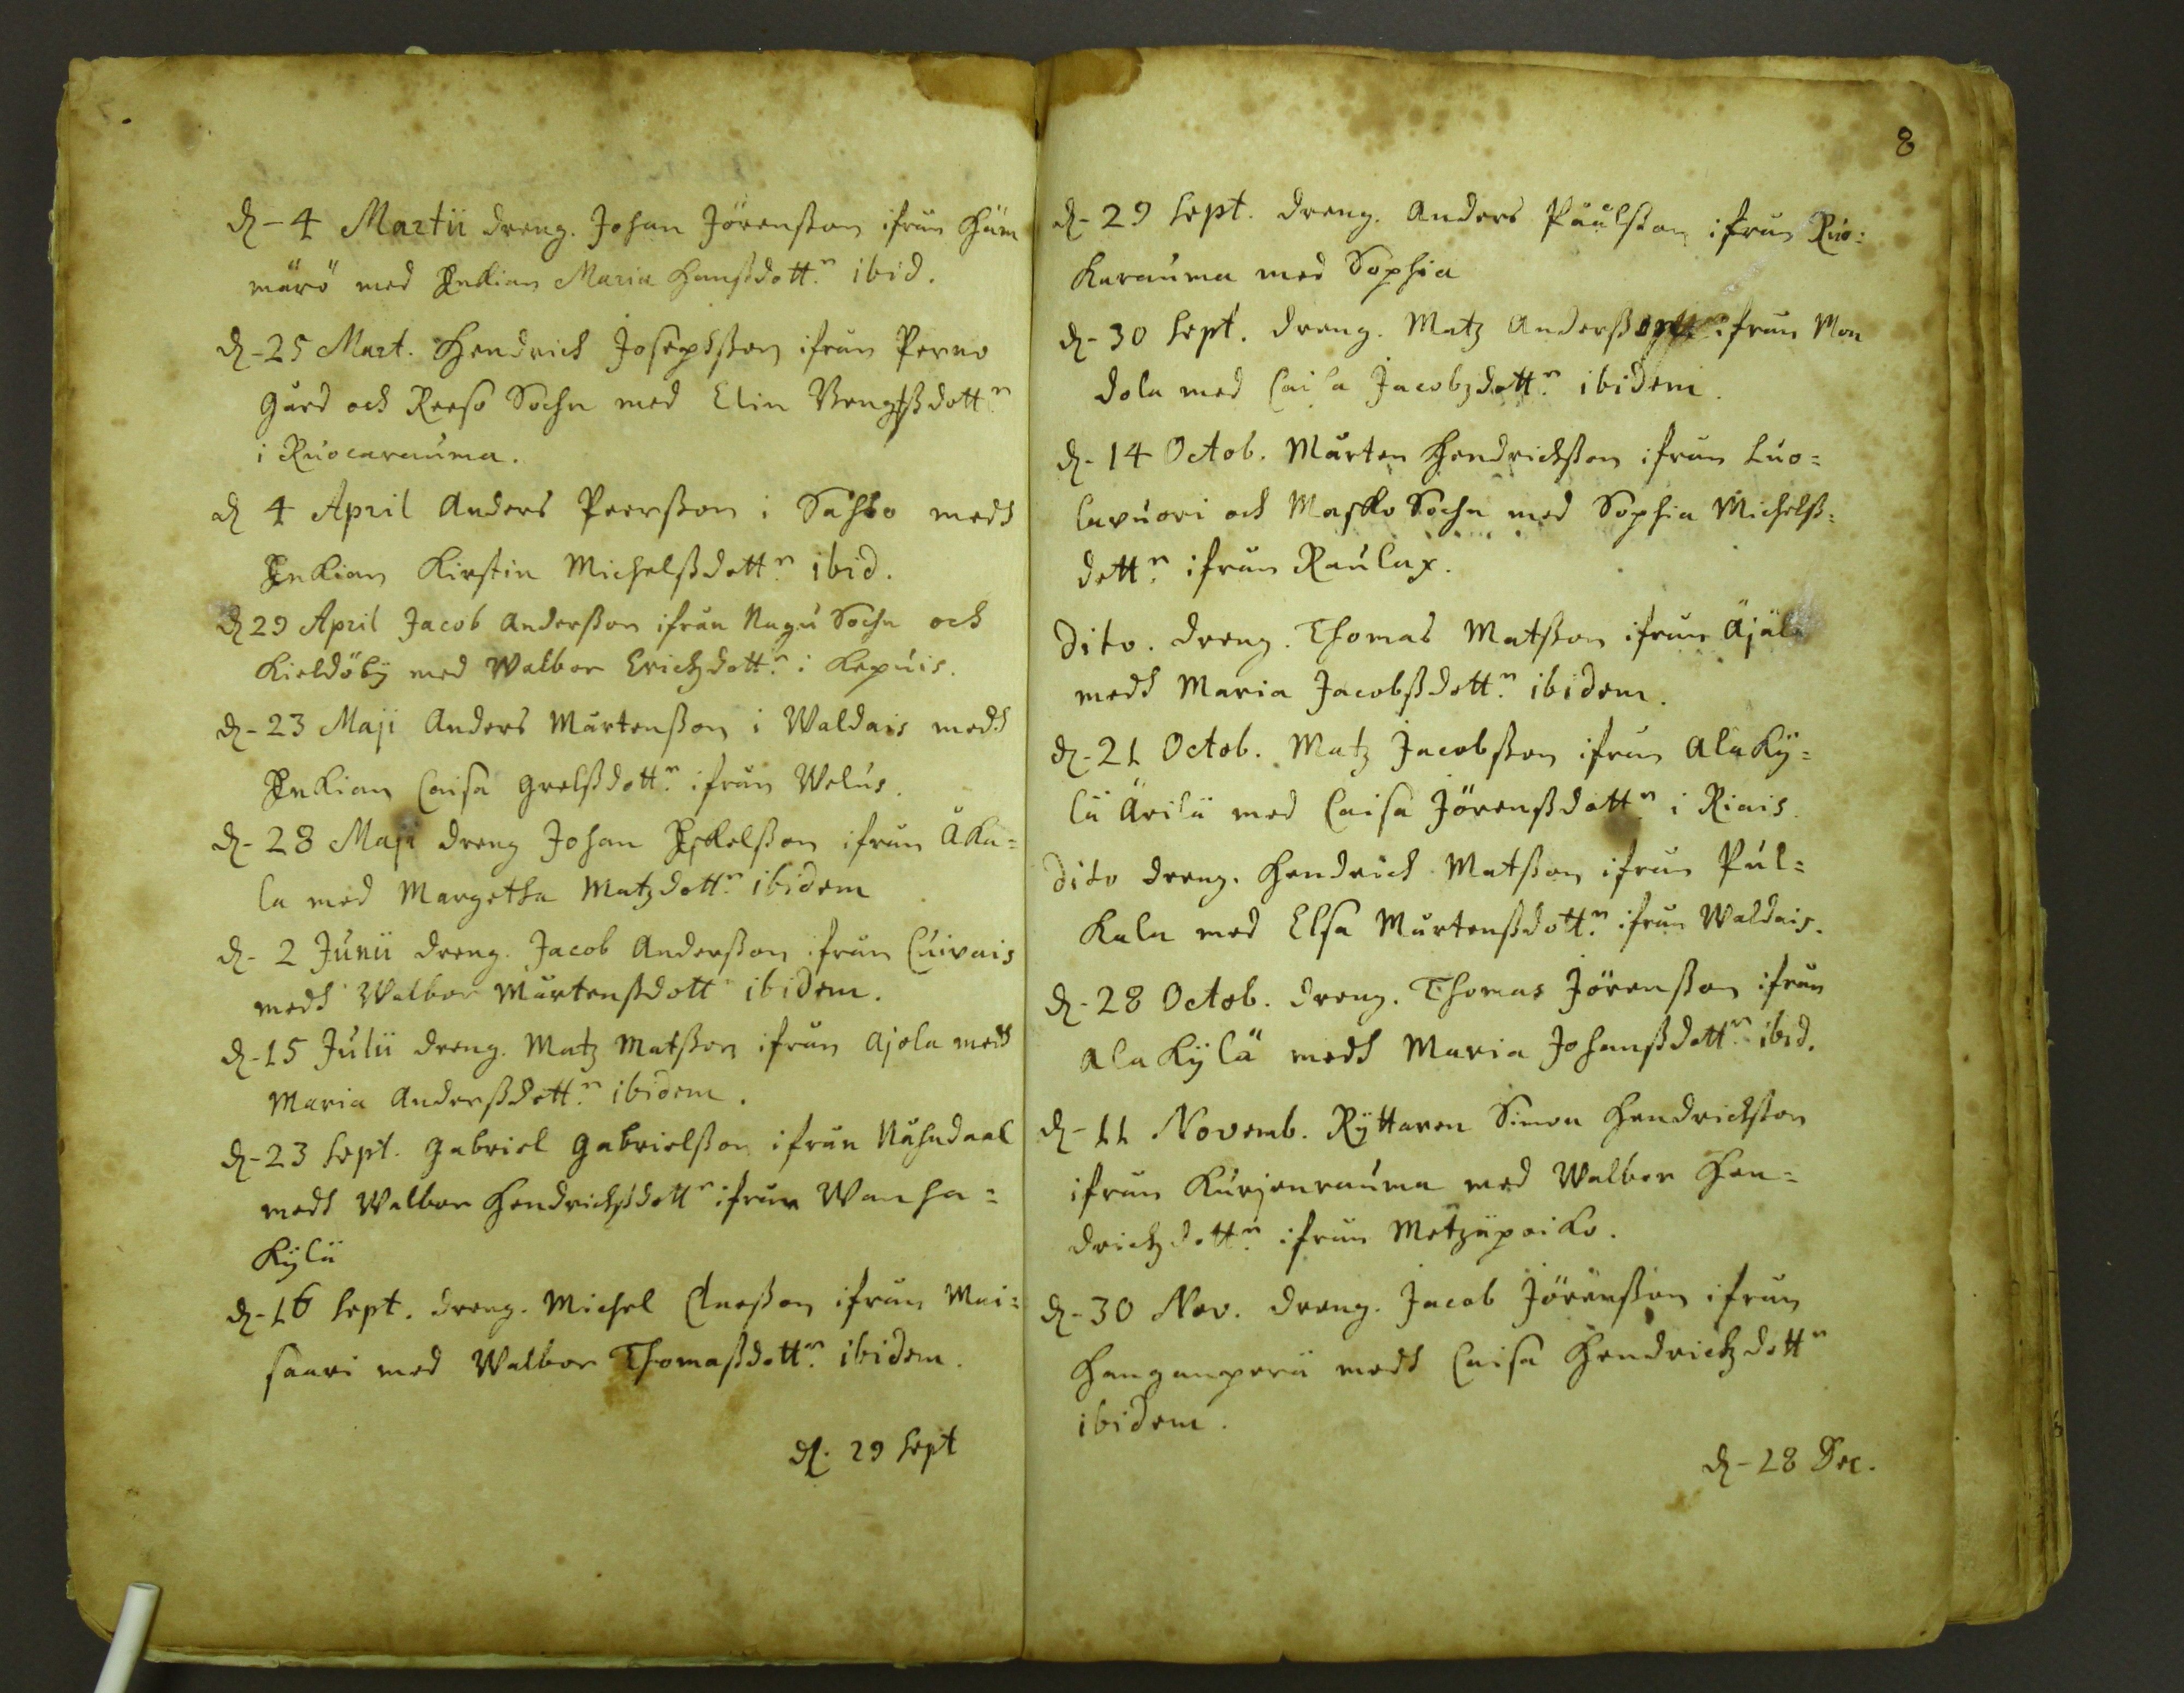 d. - 4 Martii dreng. Johan Jörenßon ifrån Häm
märö med Enkian Maria Hanßdott.r ibid.
d. - 25 Mart. Hendrich Josephßon ifrån Perno
Gård och Reso Sochn med Elin Bengtßdott.r
i Ruocarauma.
d. 4 April Anders Peerßon i Sahlo medh
Enkian Kirstin Michelßdott.r ibid.
d. 29 April Jacob Anderßon ifrån Nagu Sochn och
Kieldöby med Walbor Erichzdott.r i Kepuis.
d. - 23 Maji Anders Mårtenßon i Waldais medh
Enkian Caisa Grelßdott.r ifrån Welus.
d. - 28 Maji dreng Johan Eskelßon ifrån Äka=
la med Margetha Matzdott.r ibidem
d. - 2 Junii dreng. Jacob Anderßon ifrån Luivais
medh Walbor Mårtenßdott ibidem.
d. - 15 Julii dreng. Matz Matßon ifrån Ajola medh
Maria Anderßdott.r ibidem.
d. - 23 Sept. Gabriel Gabrielßon ifrån Nåhndaal
medh Walbor Hendrichßdott.r ifrån Wanha=
kylä
d. - 16 Sept. dreng. Michel Claeßon ifrån Mai=
saari med Walbor Thomaßdott.r ibidem.
d. 29 Sept
8
d. - 29 Sept. dreng. Anders Påålßon ifrån Ruo=
karauma med Sophia
d. - 30 Sept. dreng. Matz Anderßon ifrån Mon
dola med Caisa Jacobzdott.r ibidem.
d. - 14 Octob. Mårten Hendrichßon ifrån Luo=
lavuori och Masko Sochn med Sophia Michelß=
dott.r ifrån Raulax.
Dito. dreng. Thomas Matßon ifrån Äjälä
medh Maria Jacobßdott.r ibidem.
d. - 21 Octob. Matz Jacobßon ifrån Alaky=
lä Ärilä med Caisa Jörenßdott.r i Riais.
Dito dreng. Hendrich Matßon ifrån Pul=
kala med Elsa Mårtenßdott.r ifrån Waldais.
d. - 28 Octob. dreng. Thomas Jörenßon ifrån
Alakylä medh Maria Johanßdott.r ibid.
d. - 11 Novemb. Ryttaren Simon Hendrichßon
ifrån Kurjenrauma med Walbor Hen=
drichzdott.r ifrån Metzäpaiko.
d. - 30 Nov. dreng. Jacob Jörenßon ifrån
Hanganperä medh Caisa Hendrichzdott.r
ibidem.
d. - 28 Dec.